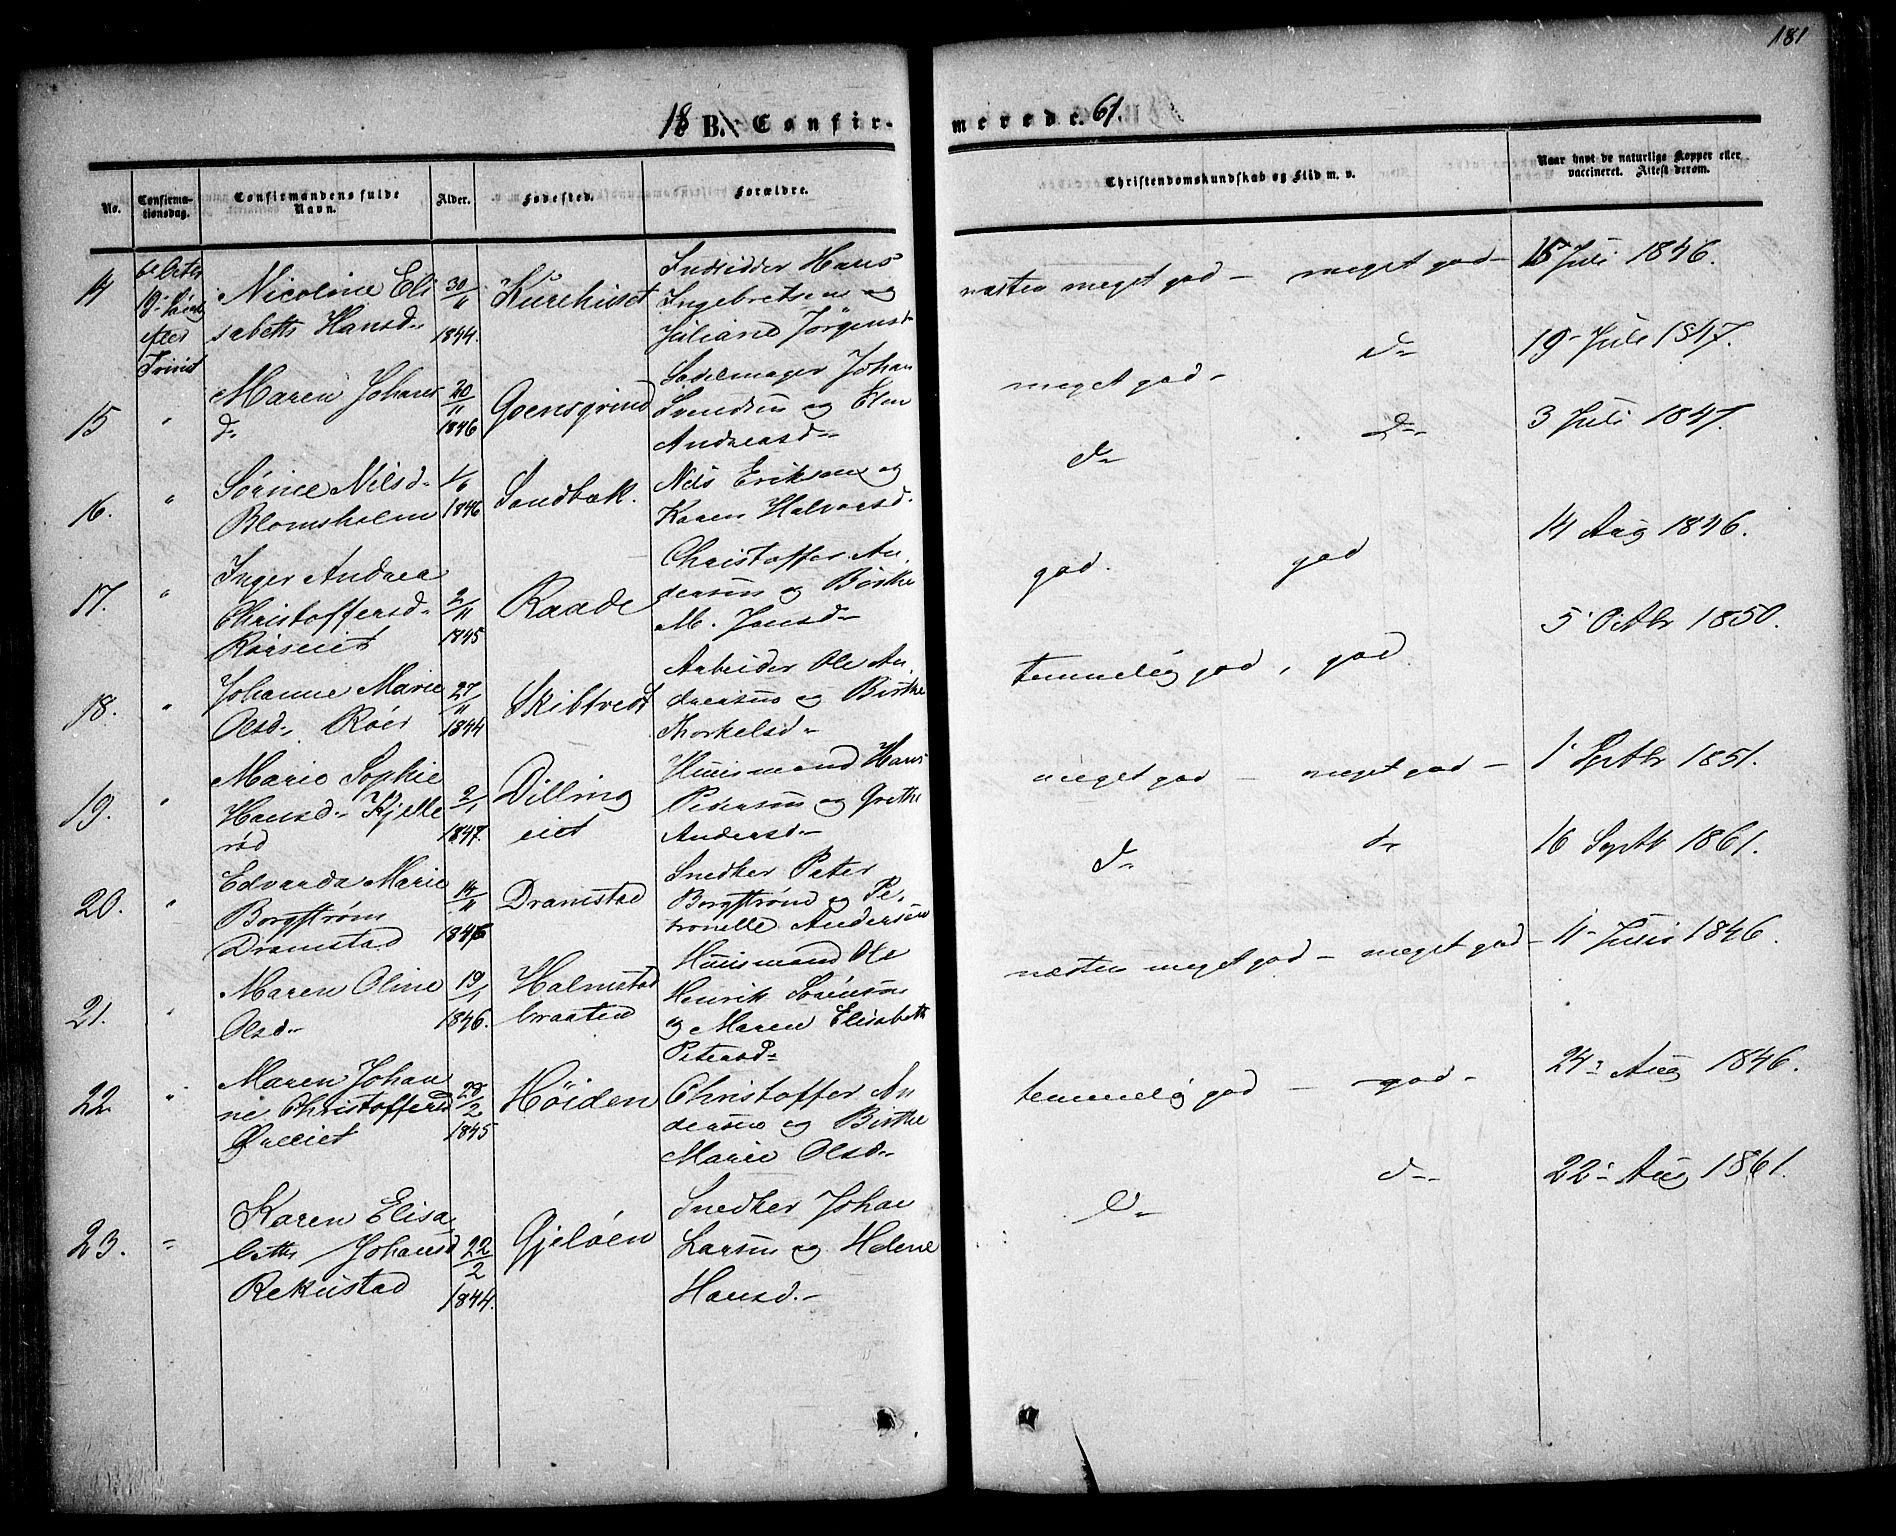 181
18 B. Confirmerede. 61.
No.
Confirmationsdag.
Confirmandens fulde Navn.
Alder.
Fødested.
Forældre.
Christendomskundskab og Flid m. v.
Naar havt de naturlige Kopper eller vaccineret. Attest derom.
14
6 Octbr
19 Sönd
efter
Trinit
Nicoline Eli
sabeth Hansd-
30/11 1844.
Kurehuset
Hans
Ingebretsen og
Juliane Jørgensd-
næsten meget god - meget god -
15 Juli 1846.
15
"
Maren Johans
d-
20/11 1846
Goensgrind
Sadelmager Johan
Svendsen og Elen
Andreasd-
meget god - d-
19- Juli 1847.
16.
"
Sørine Nilsd-
Blomsholm
1/6 1846
Sandbæk.
Nils Eriksen og
Karen Halvorsd.
d- d-
3 Juli 1847.
17.
"
Inger Andrea
Christoffersd-
Rørseiet
2/11 1845
Raade
Christoffer An
dersen og Birthe
M. Jensd-
god. god
14 Aug 1846.
18.
"
Johanne Marie
Olsd- Röer
27/11 1844
Skibtvedt
Arbeider Ole An
dreasen og Birthe
Thorkelsd-
temmelig god, god.
5' Octbr 1850.
19.
"
Marie Sophie
Hansd- Kjelle
rød
2/1 1847.
Dilling
eiet
Huusmand Hans
Pedersen og Grethe
Andersd-
meget god - meget god -
1' Septbr 1851.
20.
"
Edvarda Marie
Borgstrøm
Dramstad
14/11 1846
Dramstad
Snedker Peter
Borgstrøm og Pe-
tronelle Andersen
d- d-
16 Septb 1861.
21.
"
Maren Oline
Olsd-
19/1 1846.
Halmstad
braaten
Huusmand Ole
Henrik Sørensen
og Maren Elisabeth
Petersd-
næsten meget god - meget god -
11- Juli 1846.
22.
"
Maren Johan
ne Christoffersd
Ødeeiet
28/2 1845
Høiden
Christoffer An
dersen og Birthe
Marie Olsd-
temmelig god - god -
24- Aug 1846.
23.
"
Karen Elisa
beth Johansd
Rekustad
22/2 1844.
Gjeløen
Snedker Johan
Larsen og Helene
Hansd.-
d- d-
22- Aug 1861.